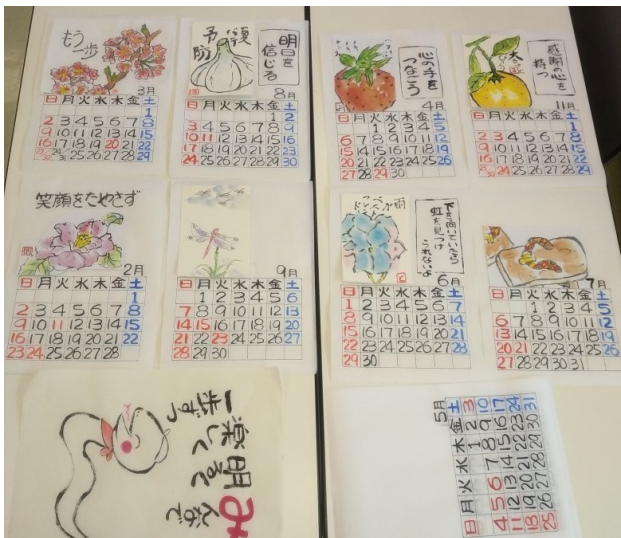 もう
一歩
3月
日 月 火 水 木 金 土
1
2 3 4 5 6 7 8
9 10 11 12 13 14 15
16 17 18 19 20 21 22
23 24 25 26 27 28 29
30 31
予防
明日を
信じる
8月
日 月 火 水 木 金 土
1 2
3 4 5 6 7 8 9
10 11 12 13 14 15 16
17 18 19 20 21 22 23
24 25 26 27 28 29 30
心の手を
つなごう
4月
日 月 火 水 木 金 土
1 2 3 4 5
6 7 8 9 10 11 12
13 14 15 16 17 18 19
20 21 22 23 24 25 26
27 28 29 30
感謝の心を
持つ
11月
日 月 火 水 木 金 土
1
2 3 4 5 6 7 8
9 10 11 12 13 14 15
16 17 18 19 20 21 22
23 24 25 26 27 28 29
30
笑顔をたやさず
2月
日 月 火 水 木 金 土
1
2 3 4 5 6 7 8
9 10 11 12 13 14 15
16 17 18 19 20 21 22
23 24 25 26 27 28
9月
日 月 火 水 木 金 土
1 2 3 4 5 6
7 8 9 10 11 12 13
14 15 16 17 18 19 20
21 22 23 24 25 26 27
28 29 30
下を向いていたら
虹を見つけ
られないよ
6月
日 月 火 水 木 金 土
1 2 3 4 5 6 7
8 9 10 11 12 13 14
15 16 17 18 19 20 21
22 23 24 25 26 27 28
29 30
7月
日 月 火 水 木 金 土
1 2 3 4 5
6 7 8 9 10 11 12
13 14 15 16 17 18 19
20 21 22 23 24 25 26
27 28 29 30 31
みんなで
明るく
楽しく
一歩ずつ
5月
日 月 火 水 木 金 土
1 2 3
4 5 6 7 8 9 10
11 12 13 14 15 16 17
18 19 20 21 22 23 24
25 26 27 28 29 30 31